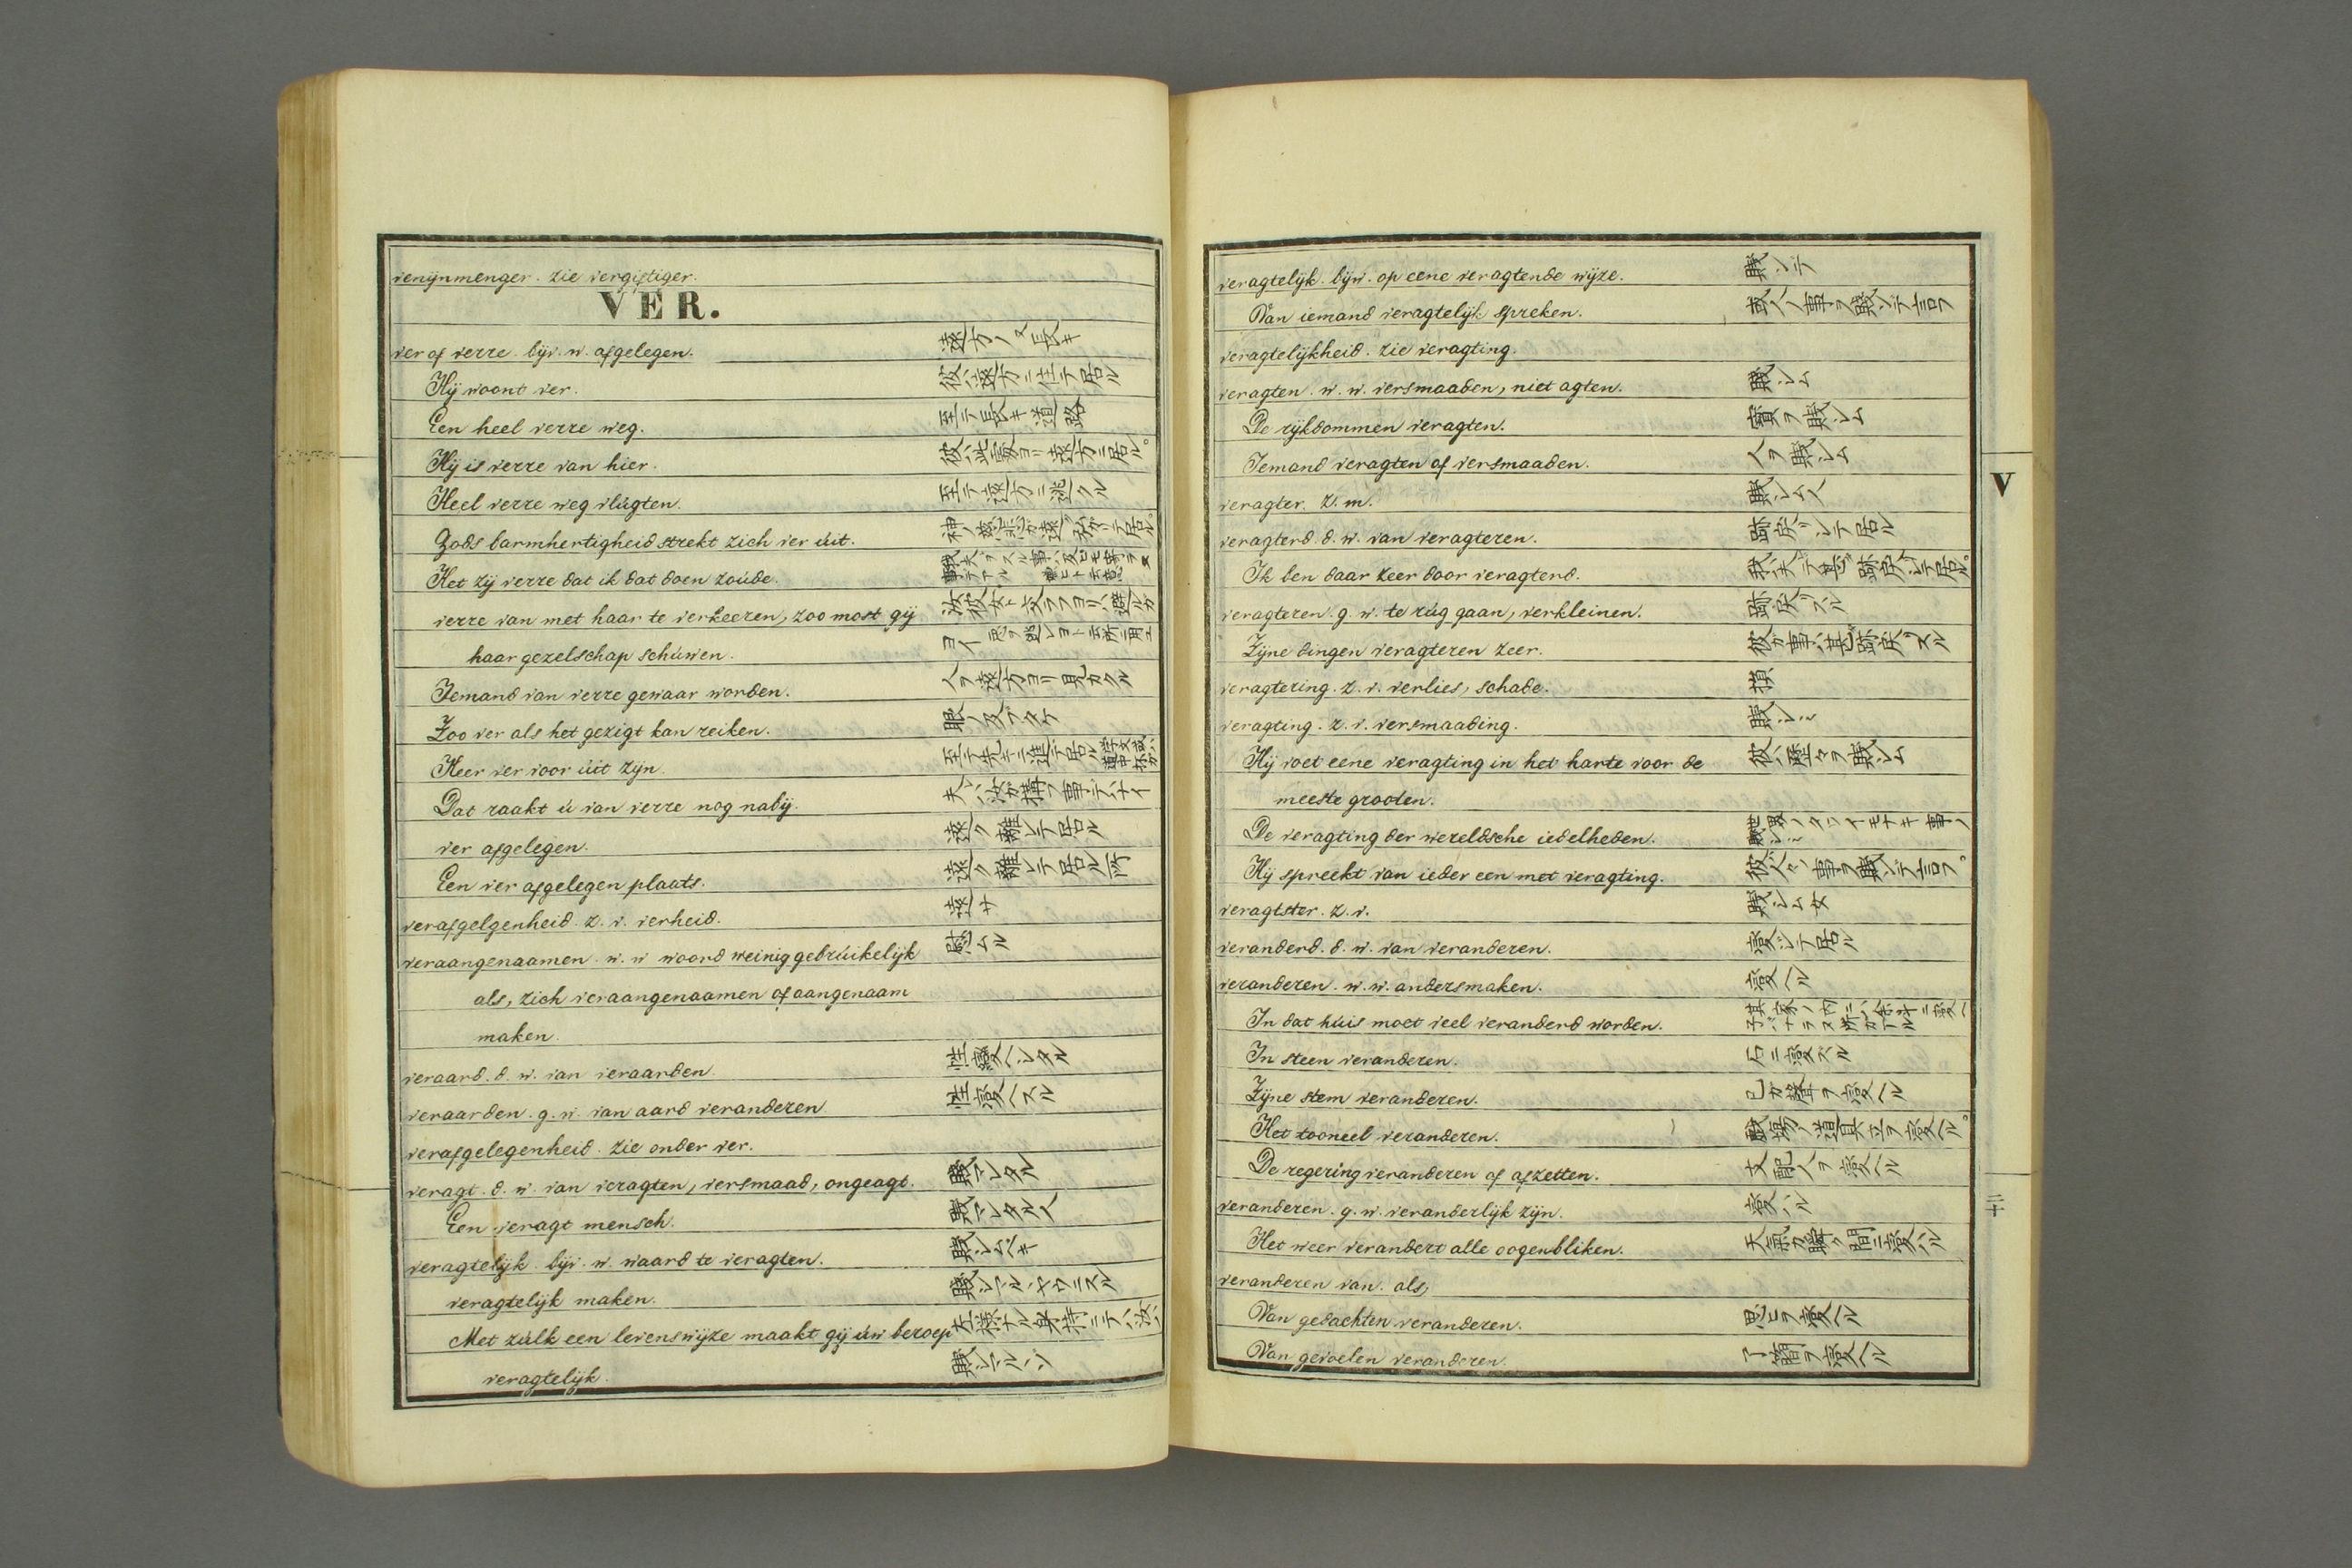 venijnmenger. zie vergiftiger.
VER.
ver of verre. bijv. w. afgelegen. 遠方ノ又長キ
Hij woont ver. 彼ハ遠方ニ住テ居ル
Een heel verre weg. 至テ長キ道路
Hij is verre van hier. 彼ハ此処ヨリ遠方ニ居ル。
Heel verre weg vlúgten. 至テ遠方ニ逃クル
Gods barmhertigheid strekt zich ver úit. 神ノ慈悲ガ遠ク弘ガリテ居ル。
Het zij verre dat ik dat doen zoúde.
verre van met haar te verkeeren, zoo most gij 汝彼女ト交ラフヨリハ避ルガ
haar gezelschap schúwen. ヨイ
Iemand van verre gewaar worden. 人ヲ遠方ヨリ見カクル
Zoo ver als het gezigt kan reiken. 眼ノ及ブタケ
Heer ver voor úit zijn. 至テ先キニ進テ居ル
Dat raakt ú van verre nog nabij. 夫レハ汝ガ構フ事デハナイ
ver afgelegen. 遠ク離レテ居ル
Een ver afgelegen plaats. 遠ク離レテ居ル所
verafgelgenheid. z. v. verheid. 遠サ
veraangenaamen. w. w woord weinig gebrúikelijk 慰ムル
als, zich veraangenaamen of aangenaam
maken.
veraard. d. w. van veraarden. 性変ヘシタル
veraarden. g. w. van aard veranderen 性変ヘスル
verafgelegenheid. zie onder ver.
veragt. d. w. van veragten, versmaad, ongeagt. 賤マレタル
Een veragt mensch. 賤マレタル人
veragtelijk. bijv. w. waard te veragten. 賤シムベキ
veragtelijk maken. 賤シマルヽヤウニスル
Met zúlk een levenswijze maakt gij úw beroep 左様ナル身持ニテハ汝ハ
veragtelijk. 賤シマルヽゾ
veragtelijk. bijw. op eene veragtende wijze. 賤ンデ
Van iemand veragtelijk spreken. 或人ノ事ヲ賤ンデ言フ
veragtelijkheid. zie veragting.
veragten. w. w. versmaaden, niet agten. 賤シム
De rijkdommen veragten. 寳ヲ賤シム
Iemand veragten of versmaaden. 人ヲ賤シム
veragter. z. m. 賤シム人
veragterd. d. w. van veragteren. 跡戻リシテ居ル
Ik ben daar zeer door veragterd. 我夫レデ甚ダ跡戻リシテ居ル。
veragteren. g. w. te rúg gaan, verkleinen. 跡戻リスル
Zijne dingen veragteren zeer. 彼ガ事ハ甚ダ跡戻リスル
veragtering. z. v. verlies, schade. 損
veragting. z. v. versmaading. 賤シミ
Hij voet eene veragting in het harte voor de 彼ハ歴々ヲ賤シム
meeste grooten.
De veragting der wereldsche iedelheden. 世界ノタワイモナキ事ノ賤シミ
Hij spreekt van ieder een met veragting. 彼ハ人々ノ事ヲ賤ンデ言フ。
veragtster. z. v. 賤シム女
veranderd. d. w. van veranderen. 変シテ居ル
veranderen. w. w. andersmaken. 変ヘル
In dat húis moet veel veranderd worden. 其家ノ内ニハ余斗ニ変ヘ子バナラヌ所ガアル
In steen veranderen. 石ニ変ズル
Zijne stem veranderen. 己ガ聲ヲ変ヘル
Het tooneel veranderen. 戯場ノ道具立ヲ変ヘル。
De regering veranderen of afzetten. 支配人ヲ変ヘル
veranderen. g. w. veranderlijk zijn. 変ハル
Het weer verandert alle oogenbliken. 天氣ガ瞬ク間ニ変ハル
veranderen van. als,
Van gedachten veranderen. 思ヒヲ変ヘル
Van gevoelen veranderen. 了簡ヲ変ヘル
V
二十